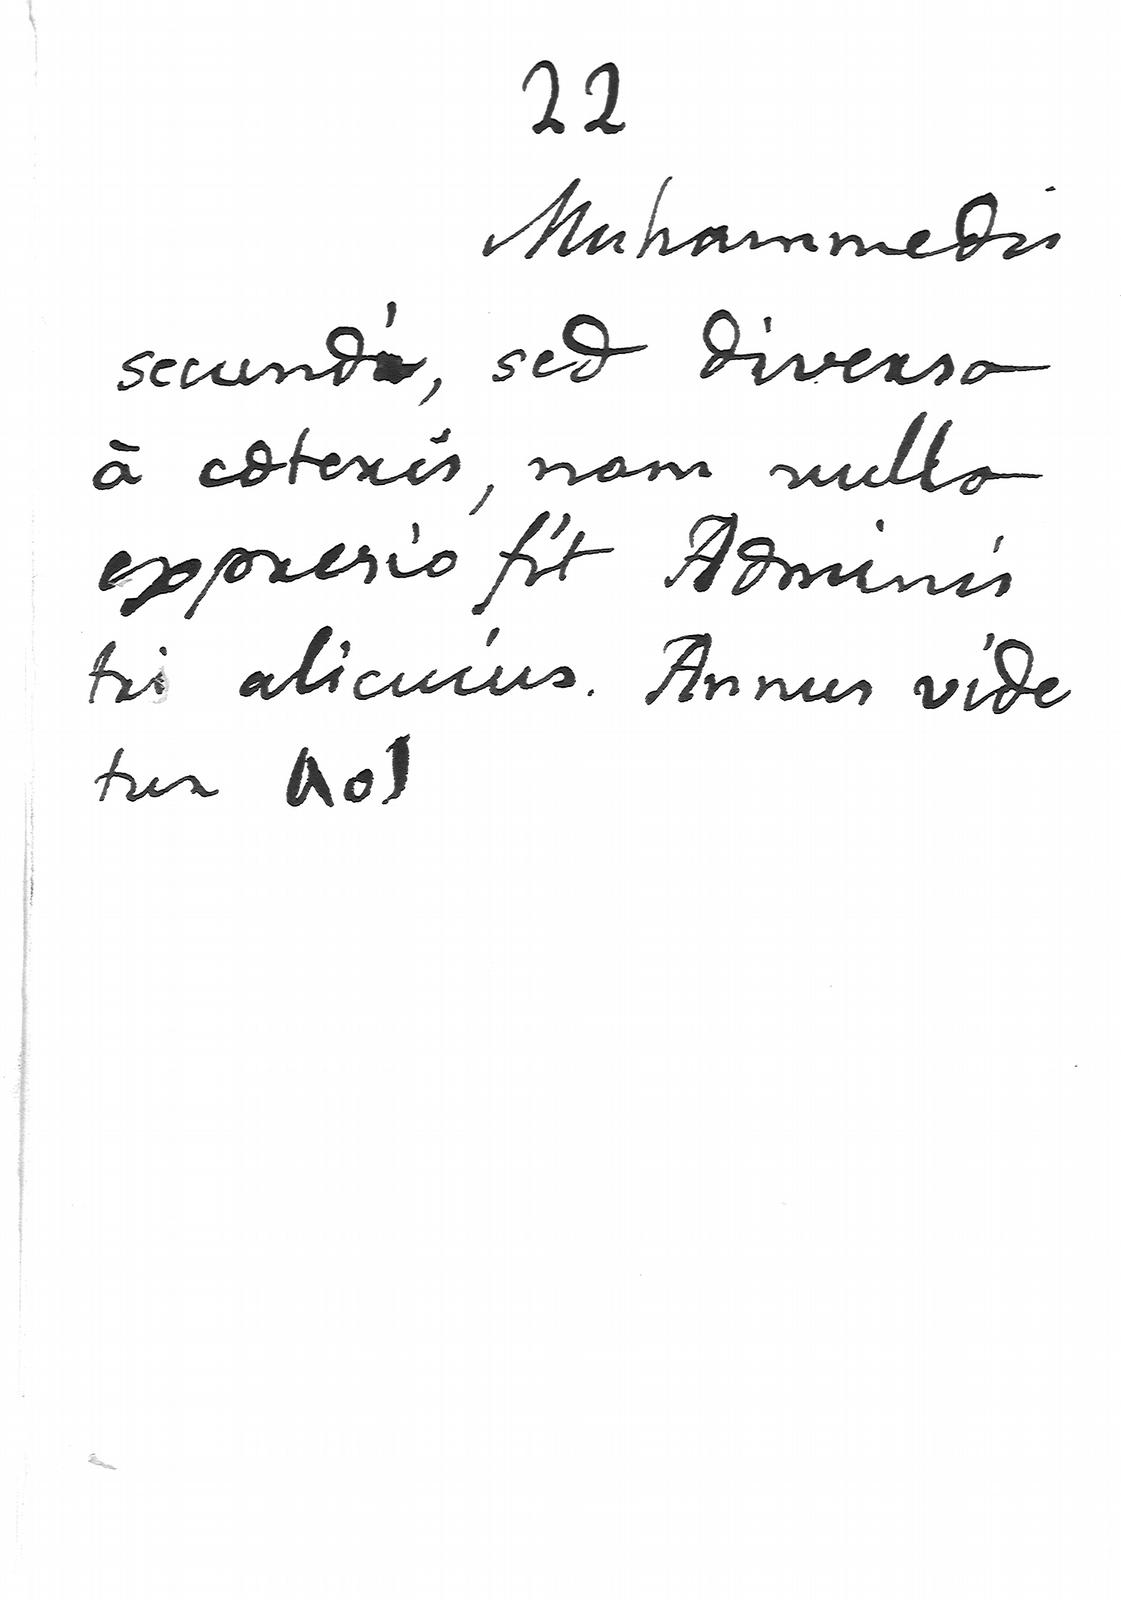 22
Muhammedis
secundi, sed diversa
à cæteris, nam nulla
expresio fit Adminis
tri alicuius. Annus vide
tur